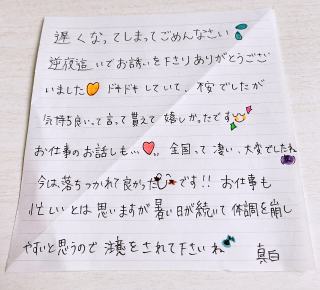 遅くなってしまってごめんなさい
逆夜這いでお誘いを下さりありがとうござ
いました ドキドキしていて、不安でしたが
気持ち良いって言って貰えて嬉しかったです
お仕事のお話しも… 全国って凄い、大変でしたね
今は、落ちつかれて良かったです!! お仕事も
忙しいとは思いますが暑い日が続いて体調を崩し
やすいと思うので注意をされて下さいね 真白